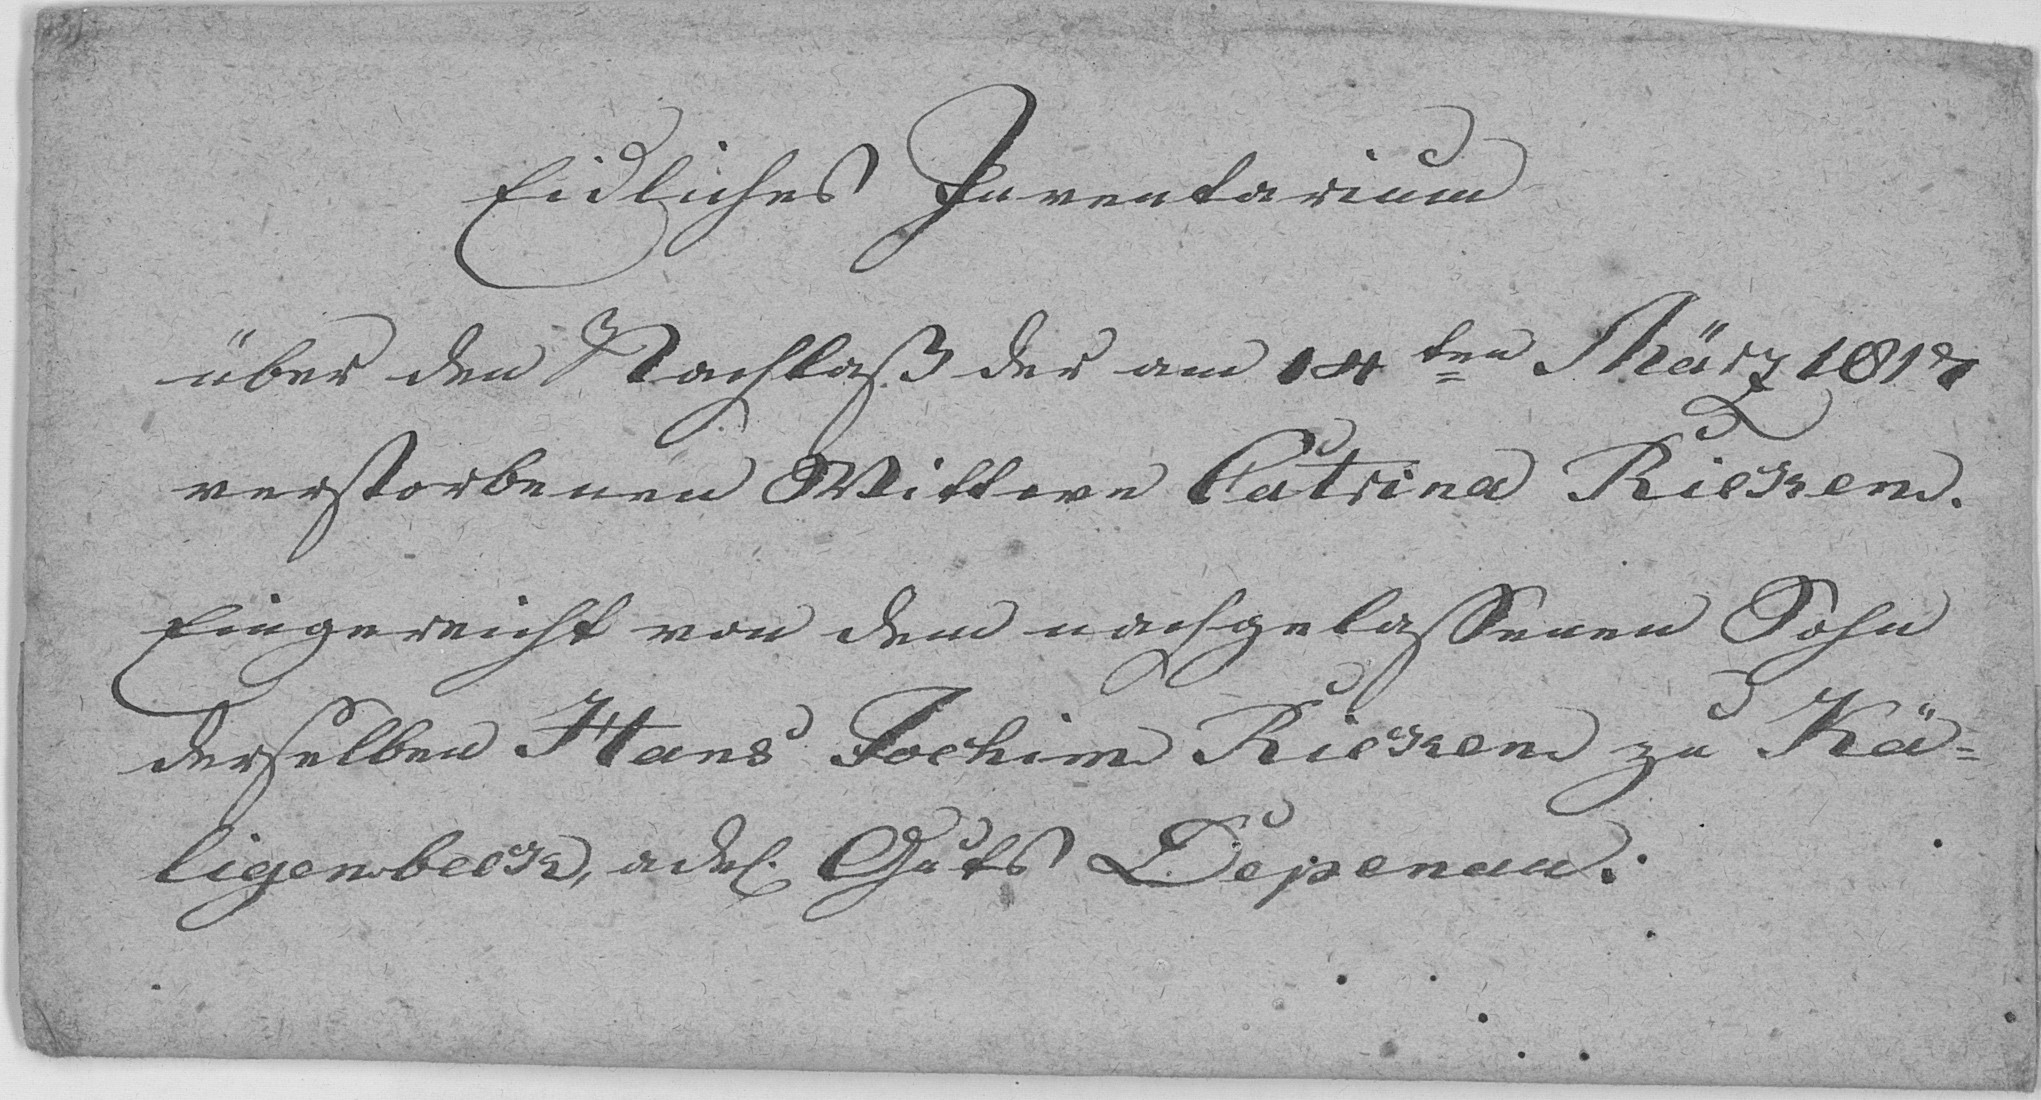 Eidliches Inventarium
über den Nachlaß der am 14ten März 1817
verstorbenen Wittwe Catrina Riecken.
Eingereicht von dem nachgelassenen Sohn
derselben Hans Jochim Riecken zu Kä-
ligenbeck, adel. Guts Depenau.